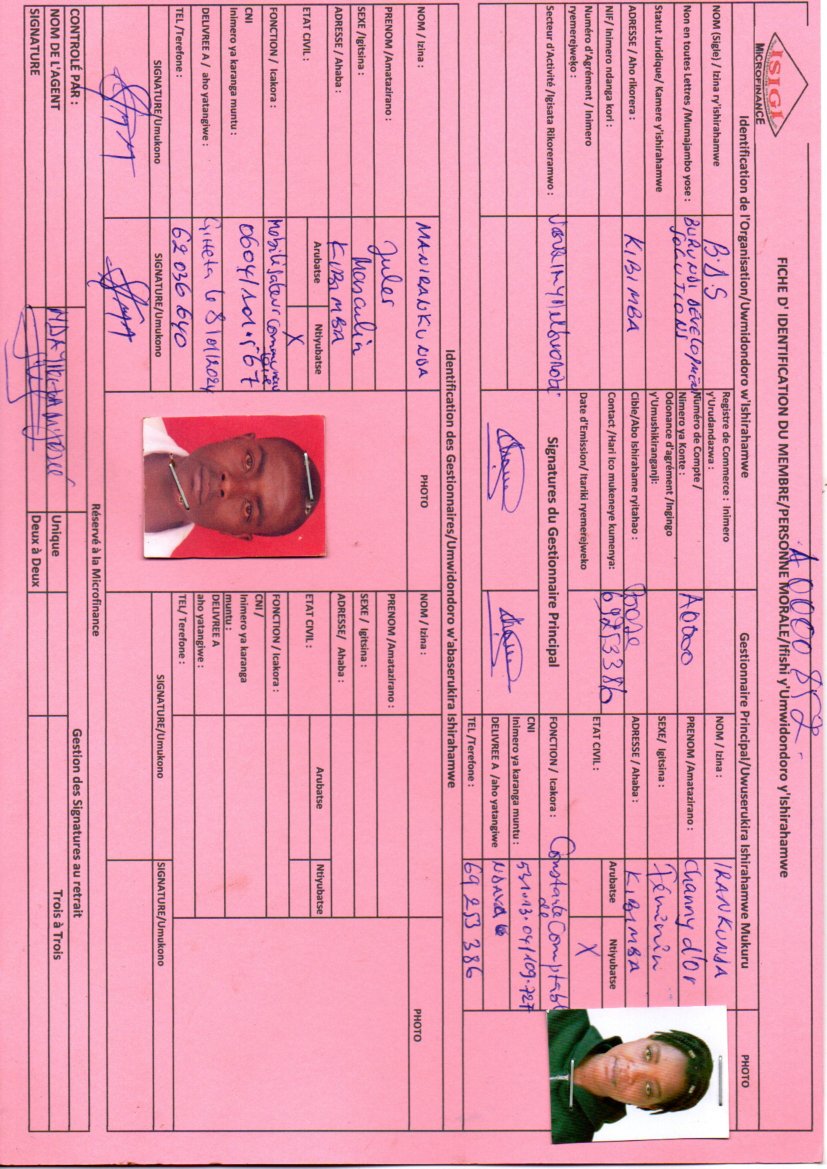 ISIGI
MICROFINANCE
A0000852
FICHE D' IDENTIFICATION DU MEMBRE/PERSONNE MORALE/Ifishi y'Umwidondoro y'Ishirahamwe
Identification de l'Organisation/Uwmidondoro w'Ishirahamwe
Gestionnaire Principal/Uwuserukira Ishirahamwe Mukuru
PHOTO
NOM (Sigle) / Izina ry'ishirahamwe
B.D.S
Registre de Commerce : Inimero y'Urudandazwa :
NOM / Izina :
IRANKUNDA
Non en toutes Lettres /Mumajambo yose :
BURUNDI DEVELOPMENT SOLUTIONS
Numéro de Compte / Nimero ya Konte :
PRENOM /Amatazirano :
Channy d'Or
Statut Juridique/ Kamere y'ishirahamwe
Odonance d'agrément /Ingingo y'Umushikiranganji:
SEXE/ Igitsina :
Féminin
ADRESSE / Aho rikorera :
KIBIMBA
Cible/Abo Ishirahame ryitahao :
ADRESSE / Ahaba :
KIBIMBA
NIF/ Inimero ndanga kori :
Contact /Hari ico mukeneye kumenya:
69253386
ETAT CIVIL :
Arubatse
Ntiyubatse
X
Numéro d'Agrément / Inimero ryemerejweko :
Date d'Emission/ Itariki ryemerejweko
Secteur d'Activité /Igisata Rikoreramwo :
Signatures du Gestionnaire Principal
FONCTION / Icakora :
Comptable
CNI
Inimero ya karanga muntu :
531.013.04/109.727
DELIVREE A /aho yatangiwe
NDAVA
TEL /Terefone :
69 253 386
Identification des Gestionnaires/Umwidondoro w'abaserukira Ishirahamwe
NOM / Izina :
MANIRANKUNDA
PHOTO
NOM / Izina :
PHOTO
PRENOM /Amatazirano :
Jules
PRENOM /Amatazirano :
SEXE /Igitsina :
Masculin
SEXE / Igitsina :
ADRESSE / Ahaba :
KIBIMBA
ADRESSE/ Ahaba :
ETAT CIVIL :
Arubatse
Ntiyubatse
X
ETAT CIVIL :
Arubatse
Ntiyubatse
FONCTION / Icakora :
Mobilisateur
FONCTION / Icakora :
CNI
Inimero ya karanga muntu :
CNI /
Inimero ya karanga muntu :
DELIVREE A / aho yatangiwe :
Giheta le
DELIVREE A
aho yatangiwe :
TEL / Terefone :
62 036 640
TEL/ Terefone :
SIGNATURE/Umukono
SIGNATURE/Umukono
SIGNATURE/Umukono
SIGNATURE/Umukono
Réservé à la Microfinance
CONTROLE PAR :
Gestion des Signatures au retrait
NOM DE L'AGENT
Unique
Trois à Trois
SIGNATURE
Deux à Deux